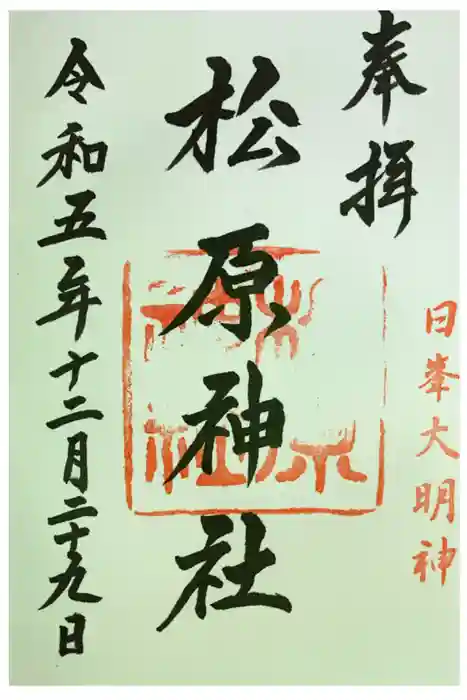 奉拝
日峯大明神
松原神社
令和五年十二月二十九日